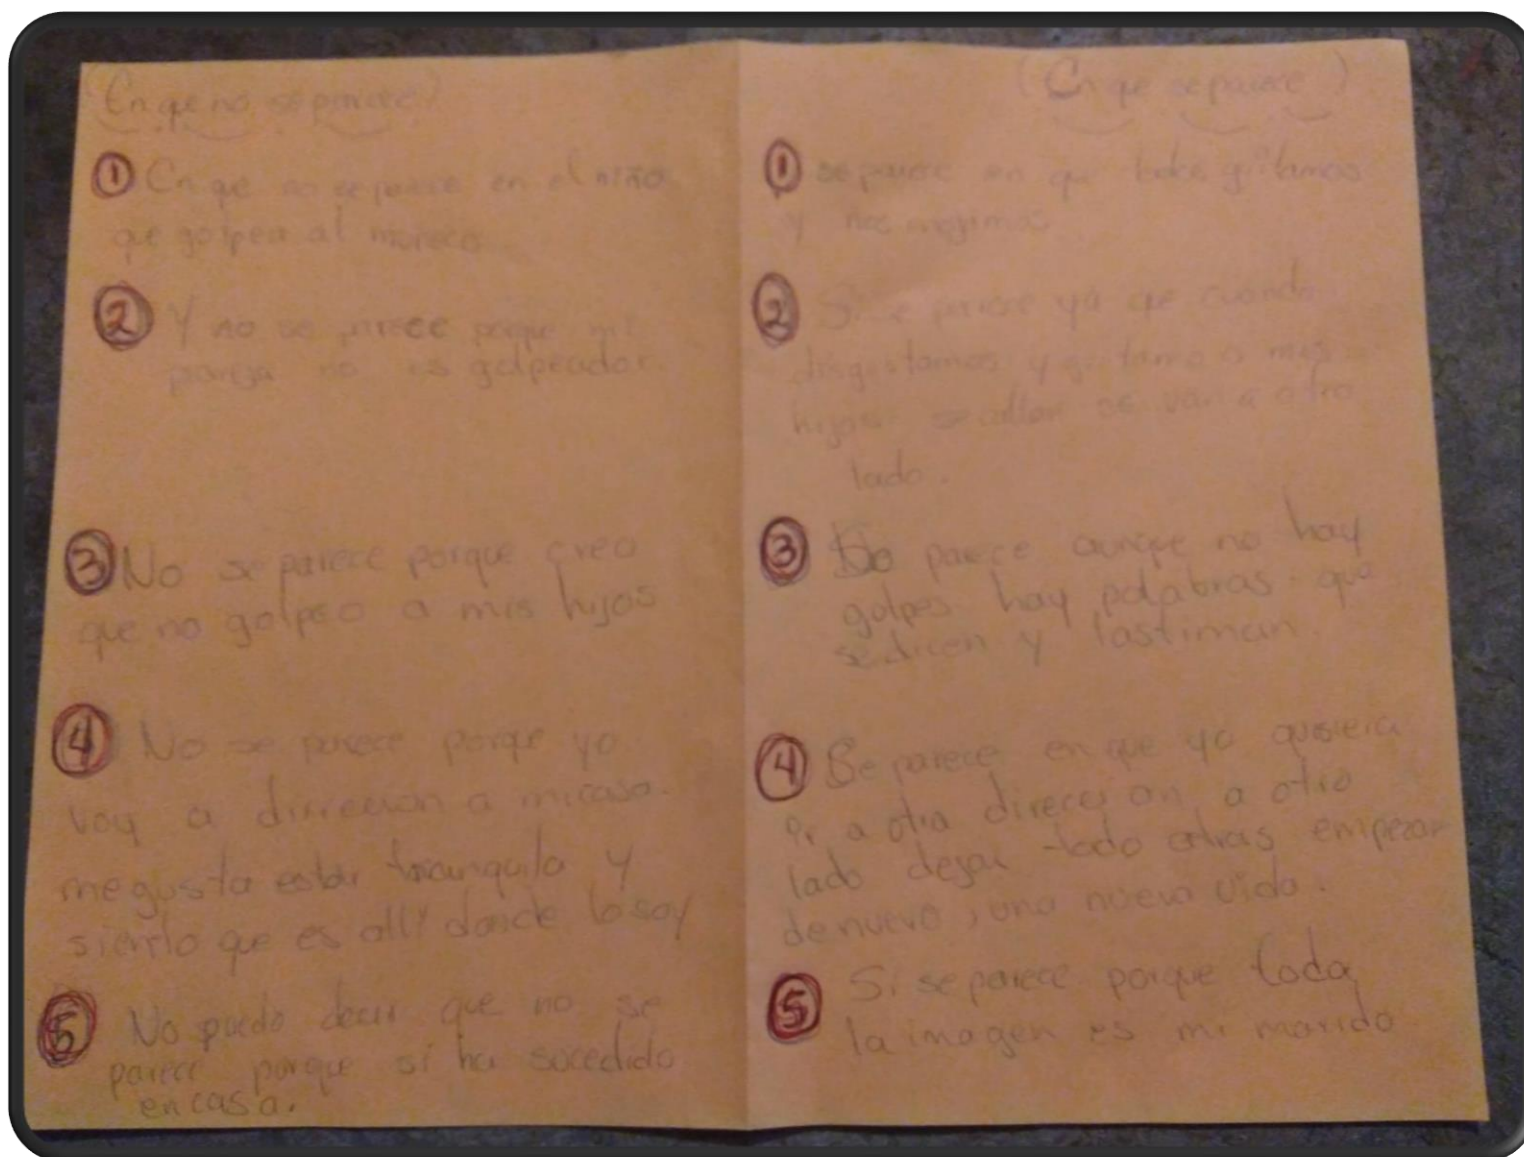 (En que no se parece)
① En qe no se parece en el niño
qe golpea al muñeco
② Y no se parece porque mi
pareja no es golpeador.
③ No se parece porque creo
que no golpeo a mis hijos
④ No se parece porqe yo
voy a dirrecion a micasa.
megusta estar tranquila y
siento que es allí donde losoy
⑤ No puedo decir que no se
parece porque si ha sucedido
en casa.
(En qe se parece)
① se parece en qe gritamos
y nos enojamos.
② Si se parece ya qe cuando
disgustamos y gritamos mis
hijos se callan se van a otro
lado.
③ parece aunqe no hay
golpes hay palabras que
sedicen y lastiman.
④ Se parece en que yo quisiera
ir a otra direccion, a otro
lado dejar todo atras empezar
denuevo, una nueva vida.
⑤ Si se parece porque toda
la imagen es mi marido